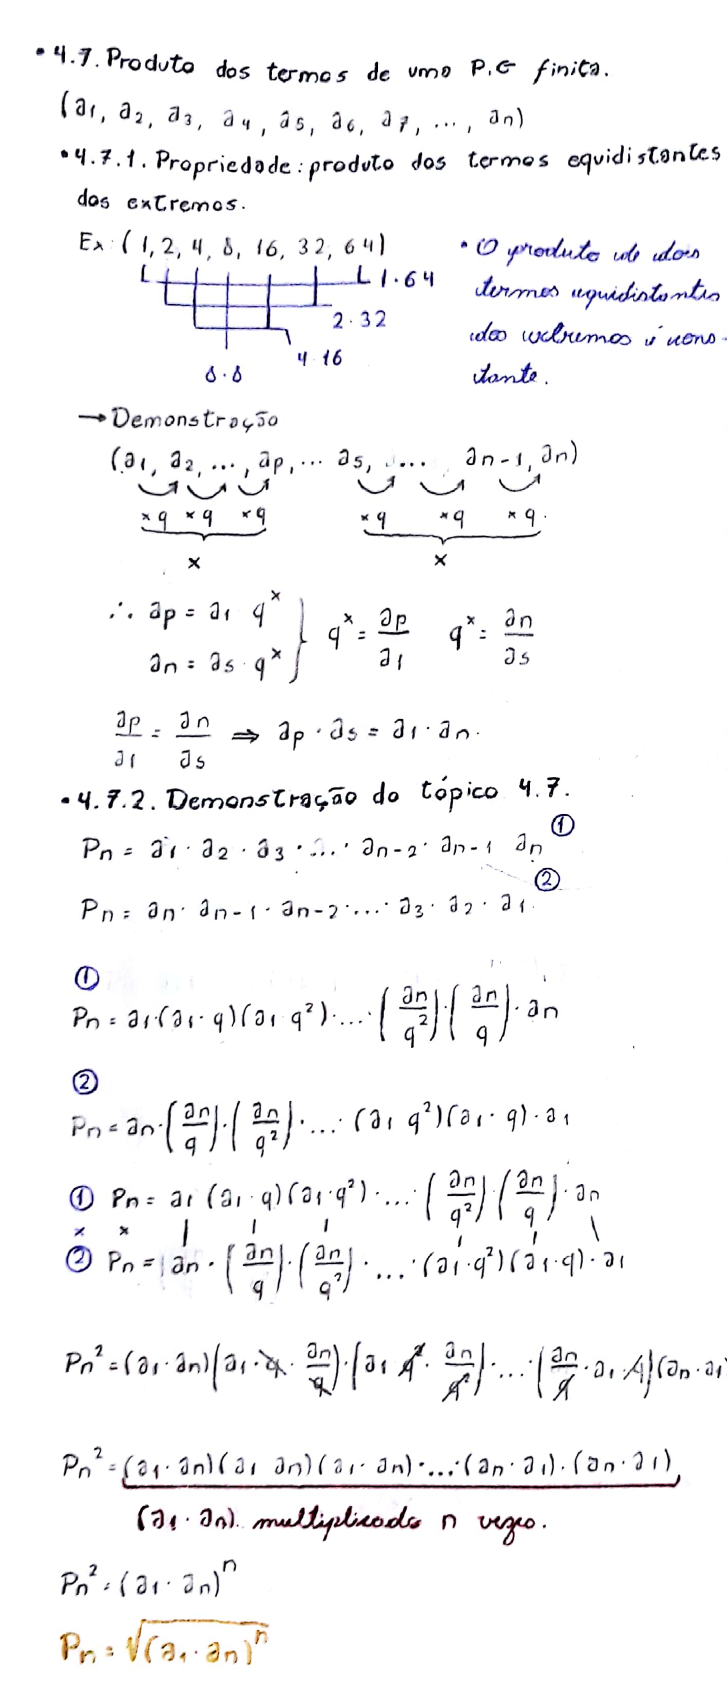 • 4.7. Produto dos termos de uma P.G finita.
(a1, a2, a3, a4, a5, a6, a7, ..., an)
• 4.7.1. Propriedade: produto dos termos equidistantes
dos extremos.
Ex: (1, 2, 4, 8, 16, 32, 64)
1·64
2·32
4·16
8·8
• O produto de dois
termos equidistantes
dos extremos é cons-
tante.
→ Demonstração
(a1, a2, ..., ap, ... as, ..., an-1, an)
×q ×q ×q ×q ×q ×q.
x x
∴ ap = a1 q^x } q^x = ap/a1 q^x = an/as
an = as · q^x
ap/a1 = an/as ⇒ ap · as = a1 · an.
• 4.7.2. Demonstração do tópico 4.7.
Pn = a1 · a2 · a3 · ... · an-2 · an-1 an ①
Pn = an · an-1 · an-2 · ... · a3 · a2 · a1. ②
①
Pn = a1·(a1·q)(a1 q²)·...·(an/q²)·(an/q)·an
②
Pn = an·(an/q)·(an/q²)·...·(a1 q²)(a1·q)·a1
① Pn = a1 (a1·q)(a1·q²)·...·(an/q²)·(an/q)·an
× ×
② Pn = an·(an/q)·(an/q²)·...·(a1·q²)(a1·q)·a1
Pn² = (a1·an)(a1·q·an/q)·(a1 q²·an/q²)·...·(an/q·a1·q)(an·a1
Pn² = (a1·an)(a1 an)(a1·an)·...·(an·a1)·(an·a1)
(a1·an). multiplicado n vezes.
Pn² = (a1·an)^n
Pn = √(a1·an)^n